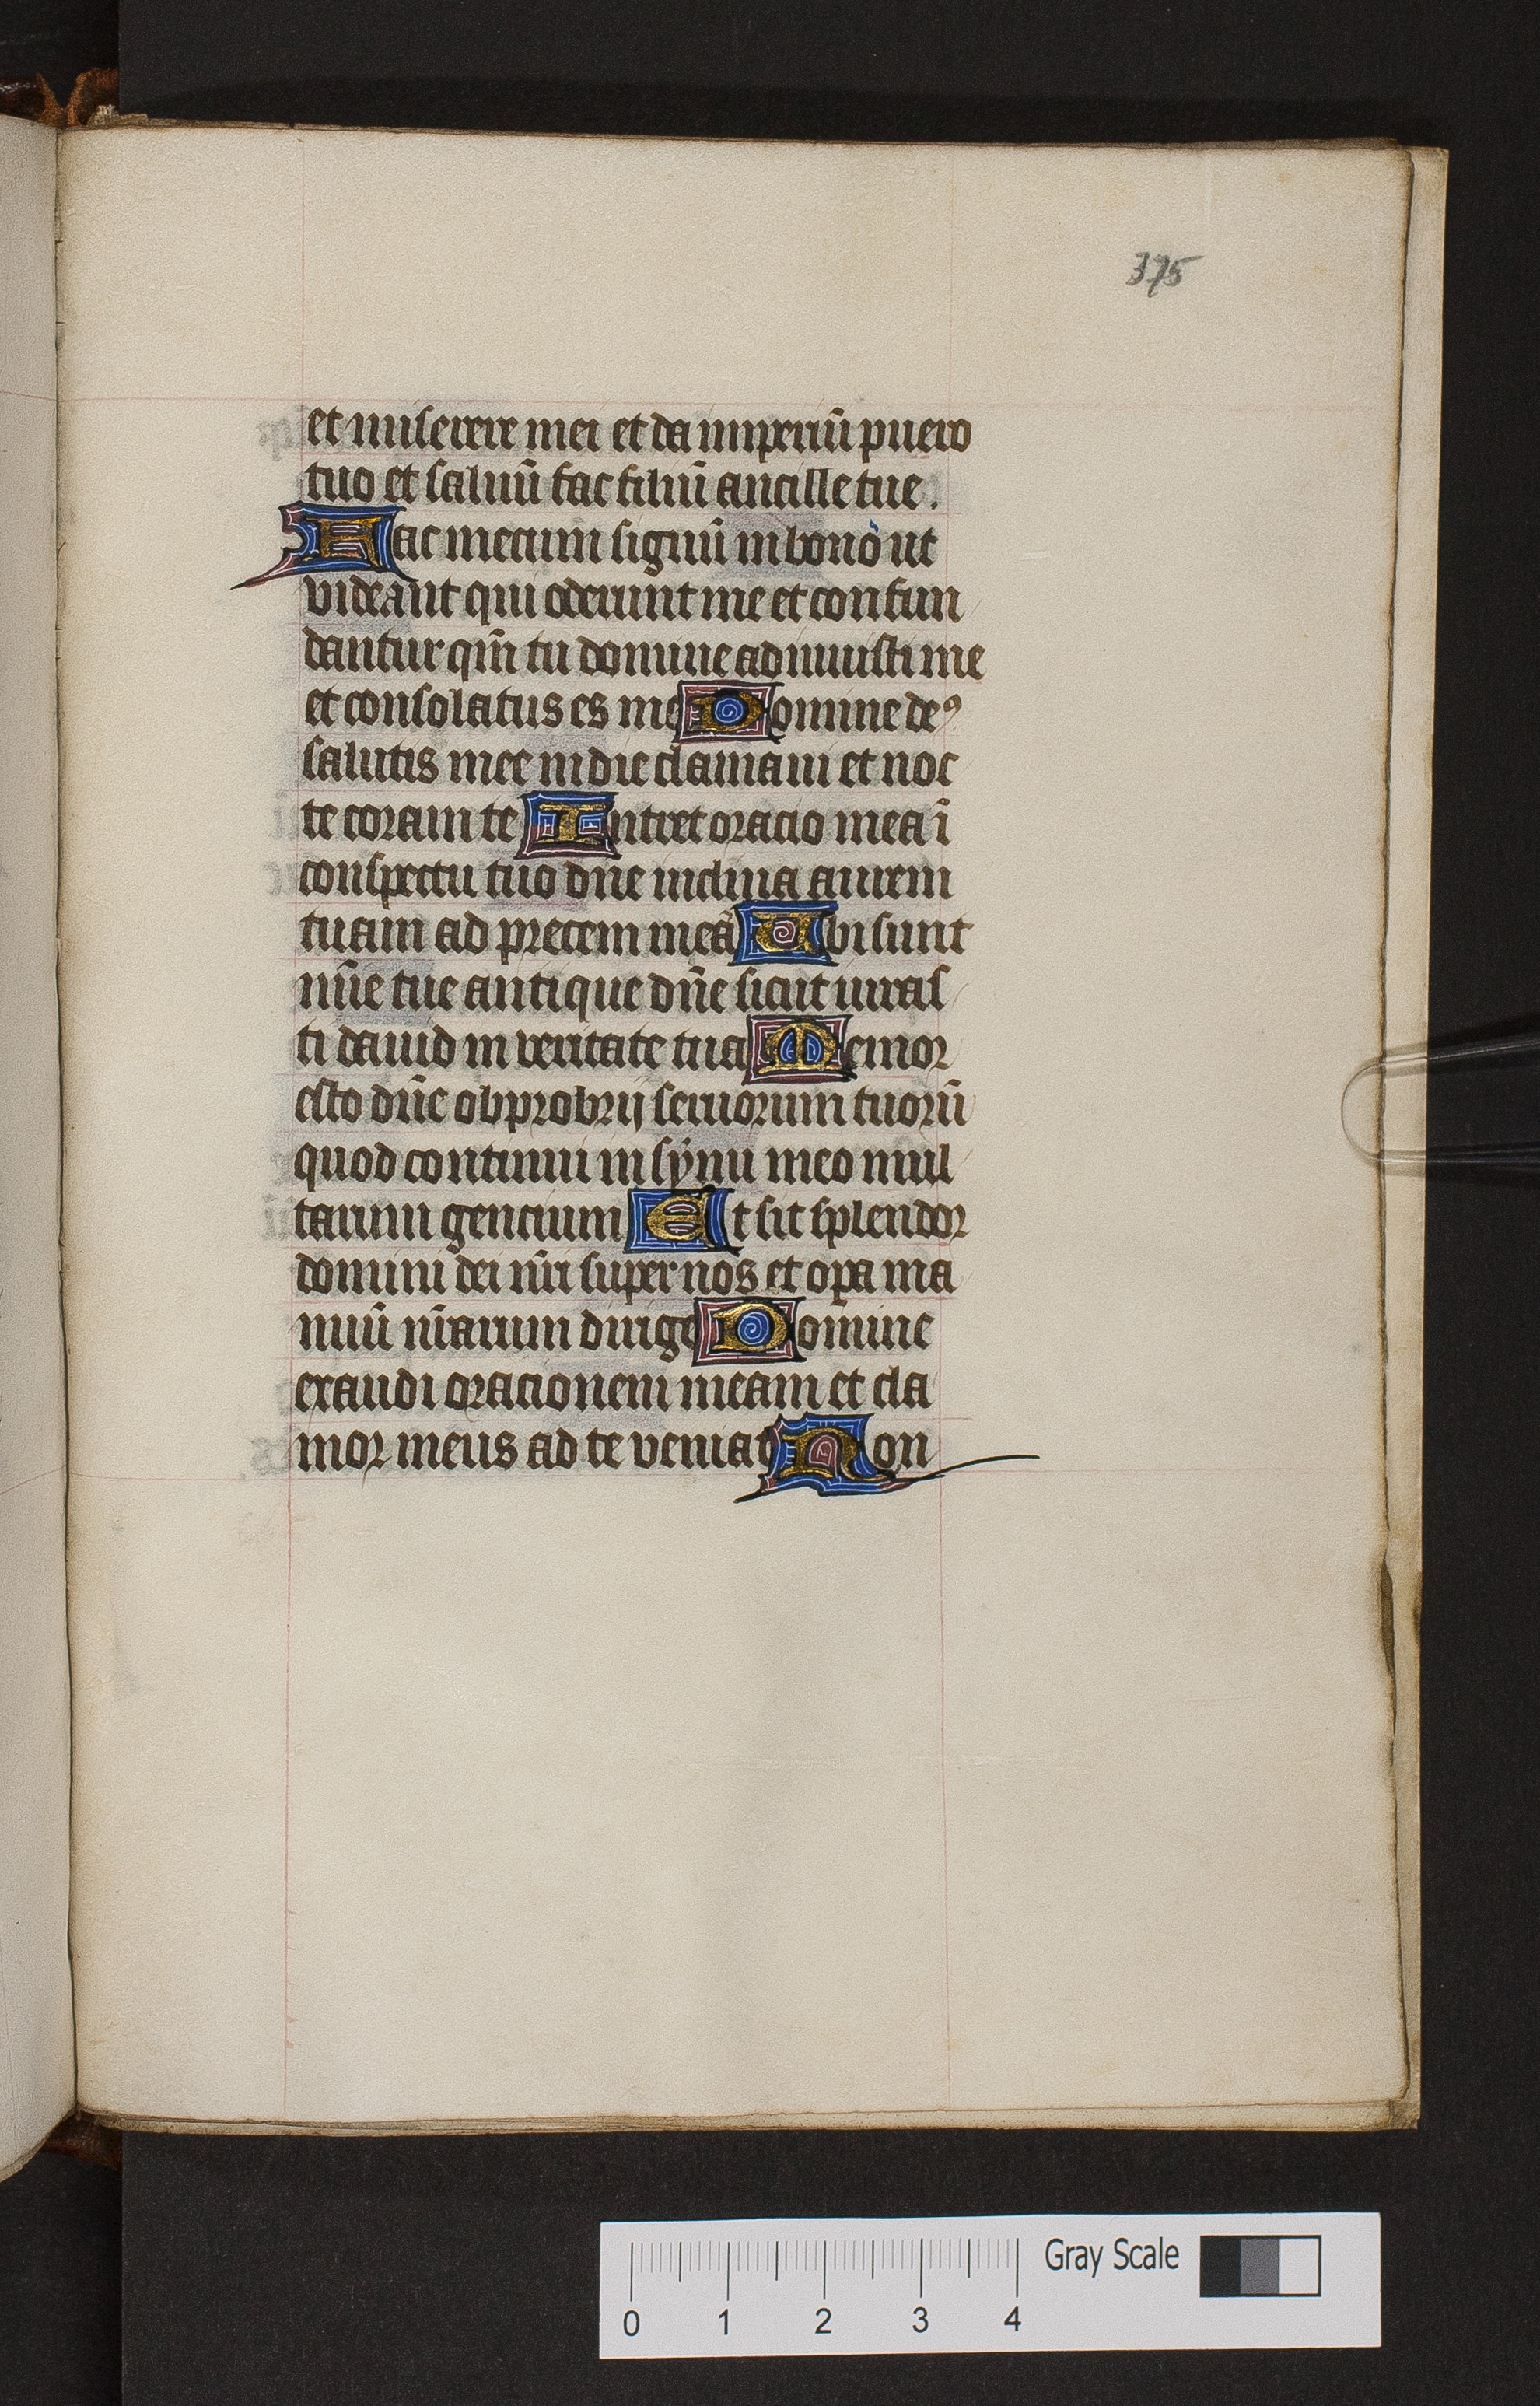 375
et miserere mei et da imperiū puero
tuo et saluū fac filiū ancille tue.
Fac mecum signū in bono ut
videant qui oderunt me et confun
dantur qm̄ tu domine adiuuisti me
et consolatus es me Domine deꝰ
salutis mee in die clamaui et noc
te coram te Intret oracio mea ī
conspectu tuo dn̄e inclina aurem
tuam ad precem meā Ubi sunt
mīe tue antique dn̄e sicut iuras
ti dauid in veritate tua Memor
esto dn̄e obprobrij seruorum tuorū
quod continui in sẏnu meo mul
tarum gencium Et sit splendor
domini dei nr̄i super nos et oꝑa ma
nuū nr̄arum dirige Domine
exaudi oracionem meam et cla
mor meus ad te veniat Non
Gray Scale
0 1 2 3 4